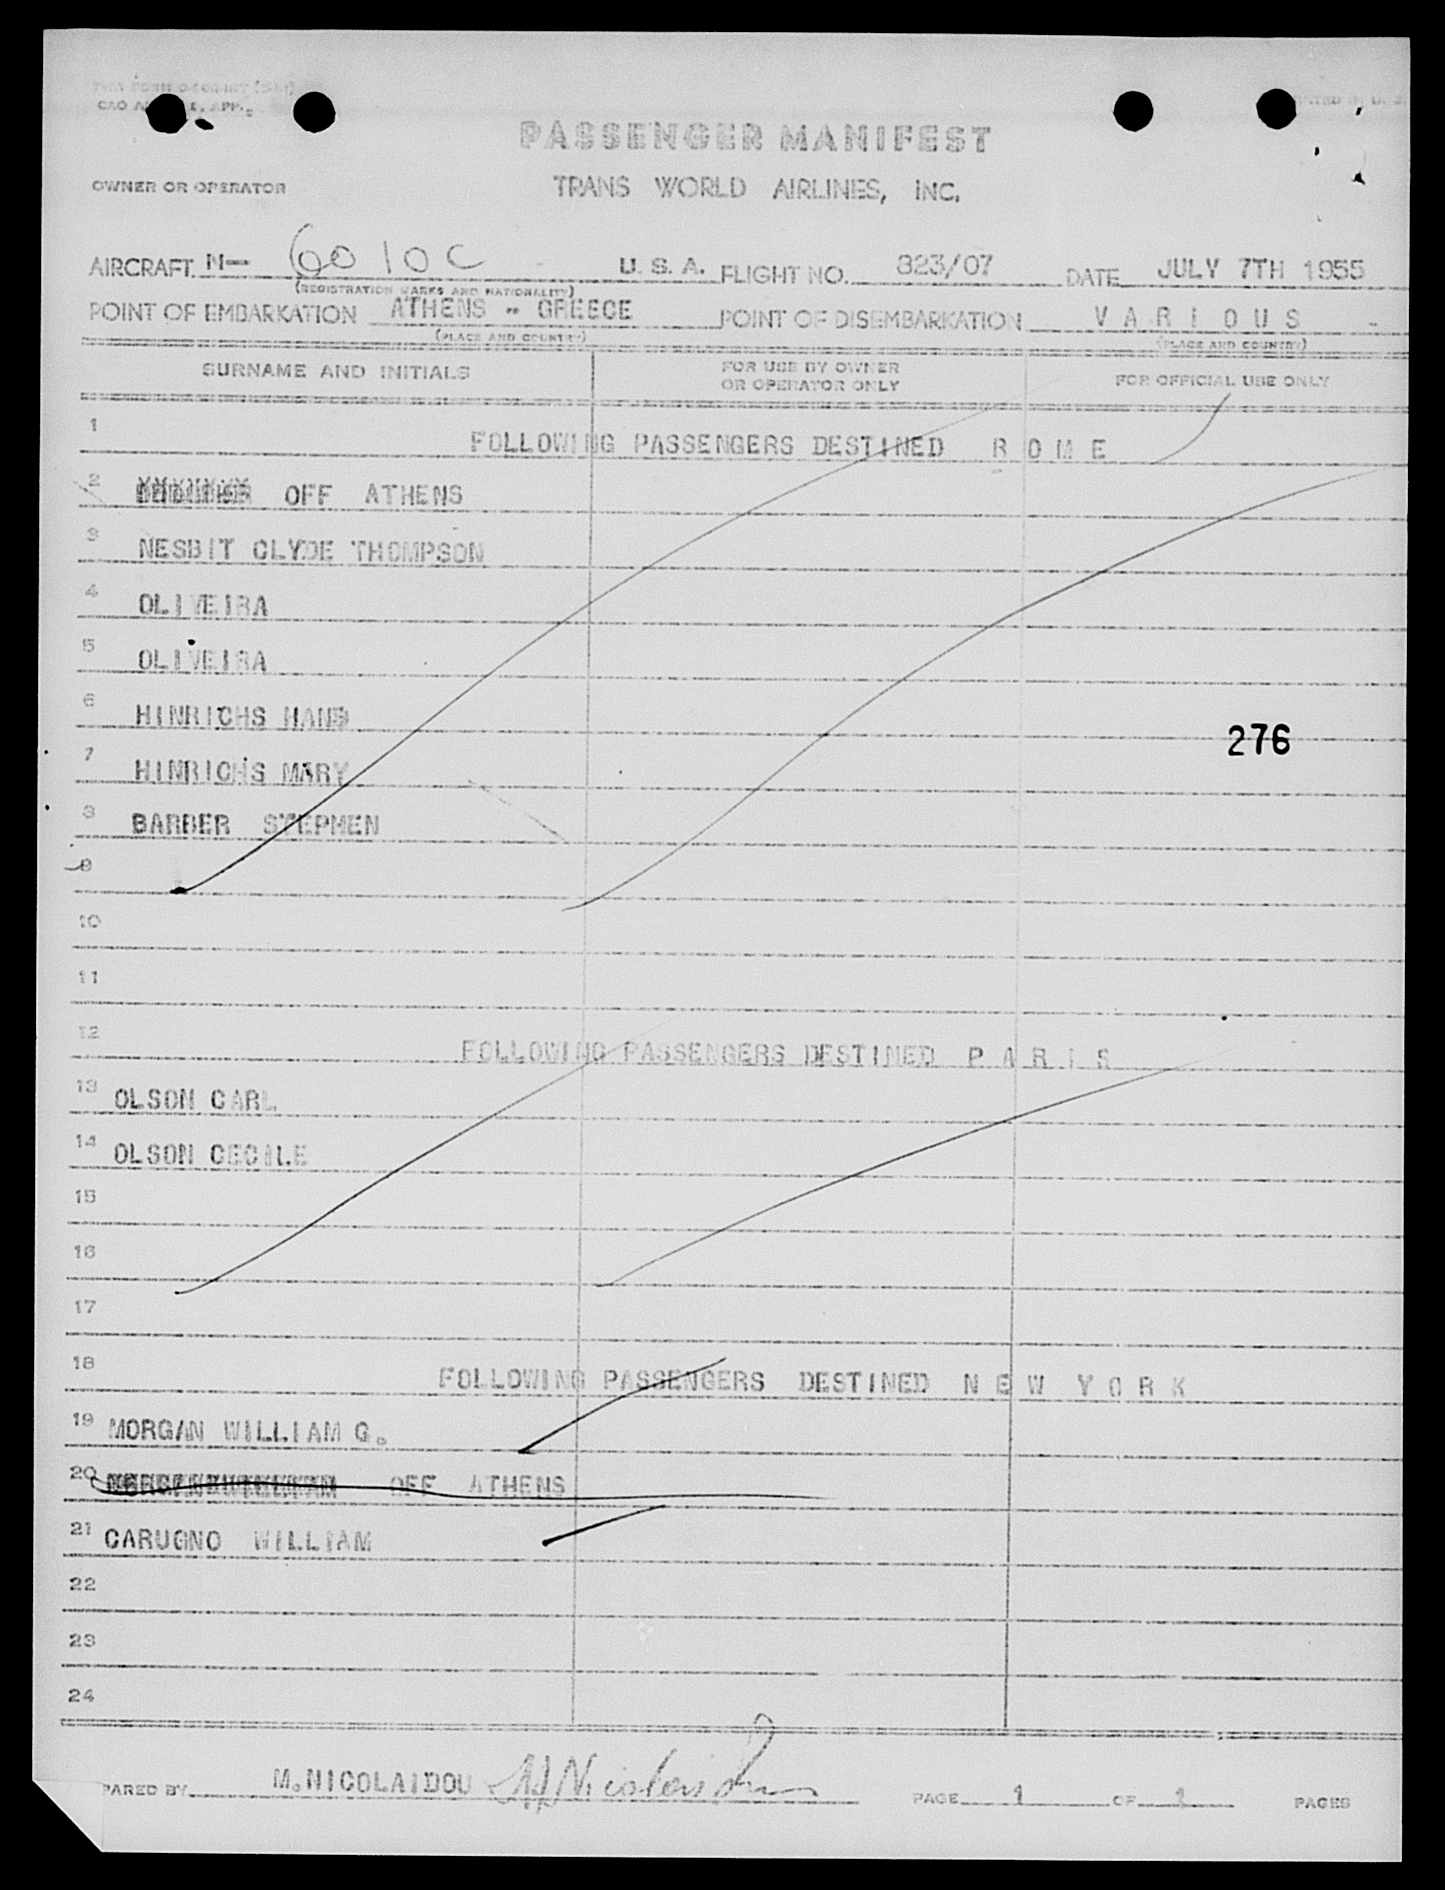 PASSENGER MANIFEST
OWNER OR OPERATOR TRANS WORLD AIRLINES, INC.
AIRCRAFT N- 6010C U. S. A. FLIGHT NO. 823/07 DATE JULY 7TH 1955
(REGISTRATION MARKS AND NATIONALITY)
POINT OF EMBARKATION ATHENS - GREECE POINT OF DISEMBARKATION V A R I O U S
(PLACE AND COUNTRY) (PLACE AND COUNTRY)
SURNAME AND INITIALS FOR USE BY OWNER OR OPERATOR ONLY FOR OFFICIAL USE ONLY
1 FOLLOWING PASSENGERS DESTINED R O M E
2 OFF ATHENS
3 NESBIT CLYDE THOMPSON
4 OLIVEIRA
5 OLIVEIRA
6 HINRICHS HANS
276
7 HINRICHS MARY
8 BARBER STEPMEN
9
10
11
12 FOLLOWING PASSENGERS DESTINED P A R I S
13 OLSON CARL
14 OLSON CECILE
15
16
17
18 FOLLOWING PASSENGERS DESTINED N E W Y O R K
19 MORGAN WILLIAM G.
20 OFF ATHENS
21 CARUGNO WILLIAM
22
23
24
PARED BY M.NICOLAIDOU PAGE 1 OF 1 PAGES